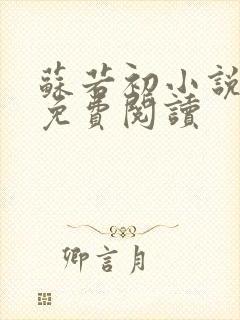 蘇若初小說
免費閱讀
卿言月